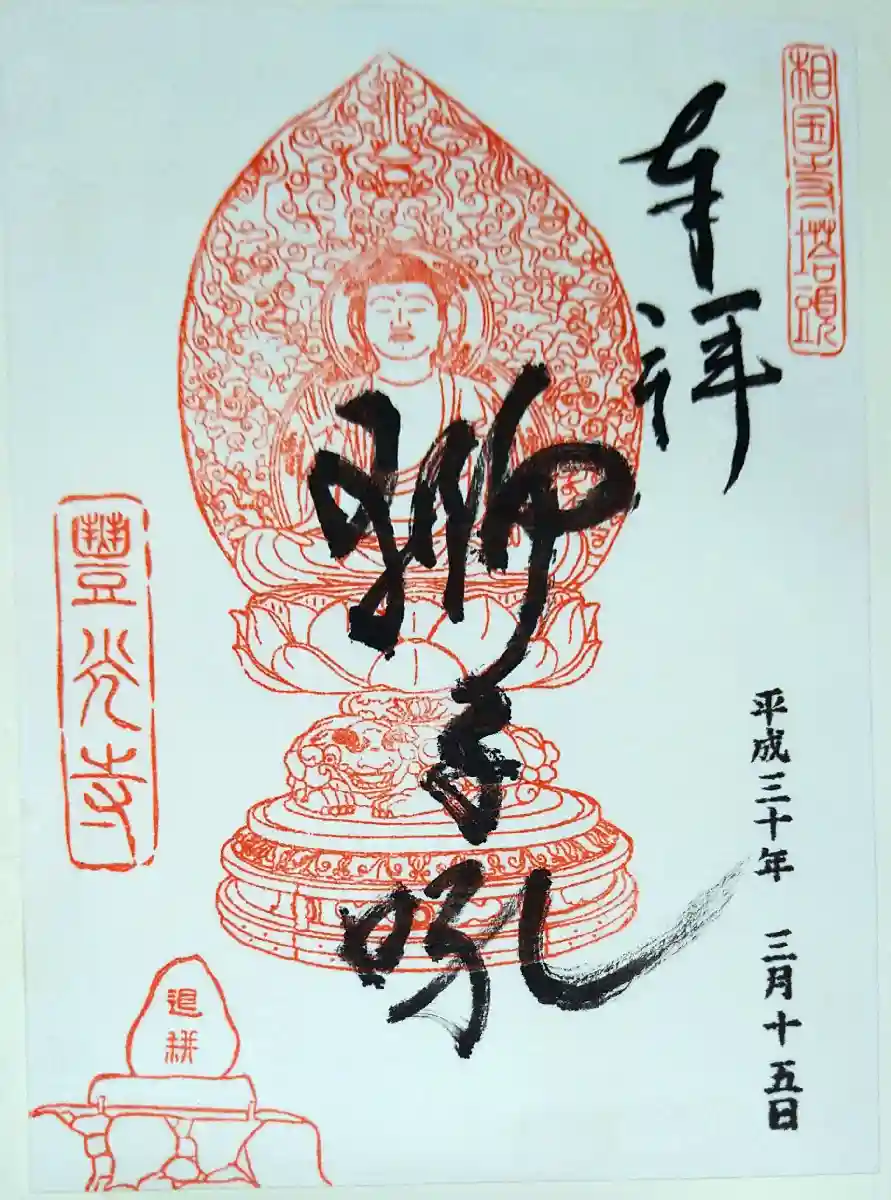 相国寺塔頭
奉拝
平成三十年 三月十五日
獅子吼
豐光寺
退耕